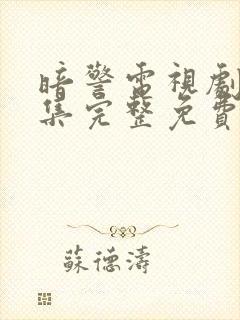 暗警電視劇
集完整免費
蘇德濤